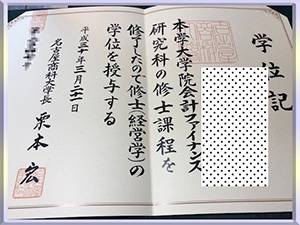 学位記
本学大学院会計ファイナンス
研究科の修士課程を
修了したので修士(経営学)の
学位を授与する
平成三十年三月二十一日
名古屋商科大学長 栗本 宏